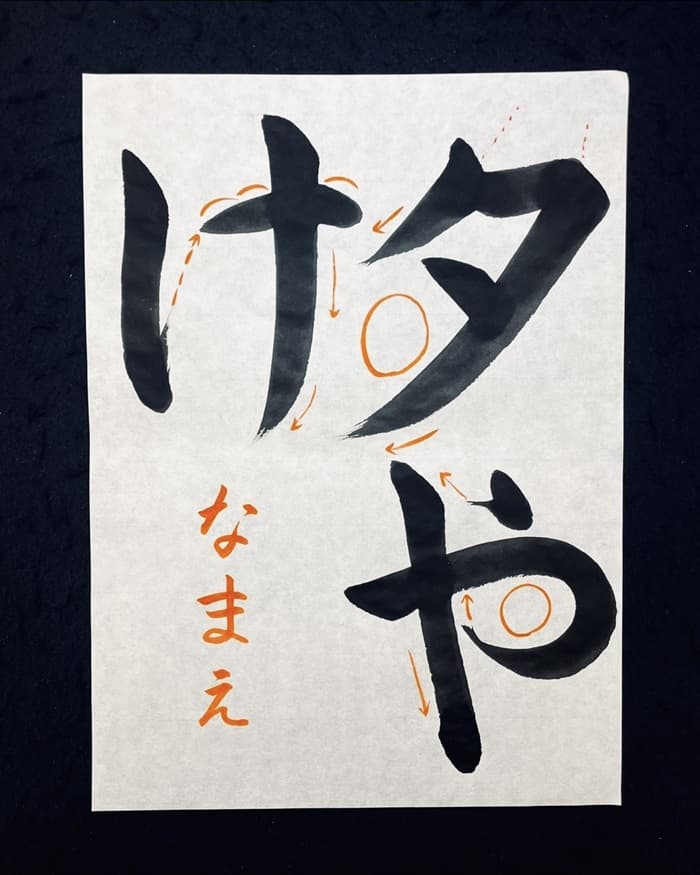 夕や
け
なまえ